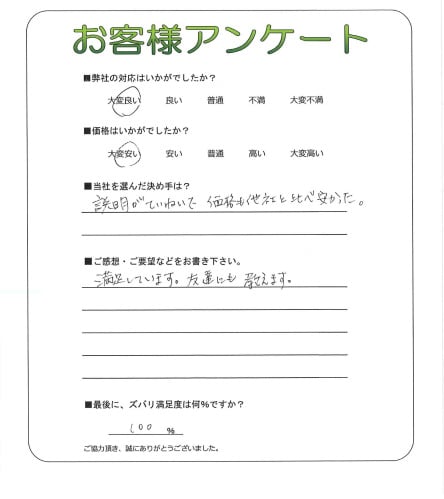 お客様アンケート
■弊社の対応はいかがでしたか?
大変良い 良い 普通 不満 大変不満
■価格はいかがでしたか?
大変安い 安い 普通 高い 大変高い
■当社を選んだ決め手は?
説明がていねいで 価格も他社と比べ安かた。
■ご感想・ご要望などをお書き下さい。
満足しています。友達にも 教えます。
■最後に、ズバリ満足度は何%ですか?
100 %
ご協力頂き、誠にありがとうございました。